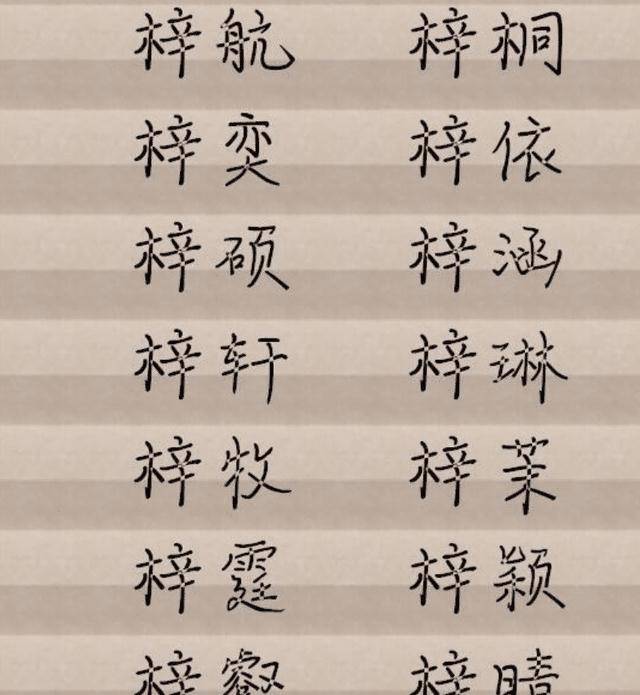 梓航 梓桐
梓奕 梓依
梓硕 梓涵
梓轩 梓琳
梓牧 梓茉
梓霆 梓颖
梓叡 梓晴